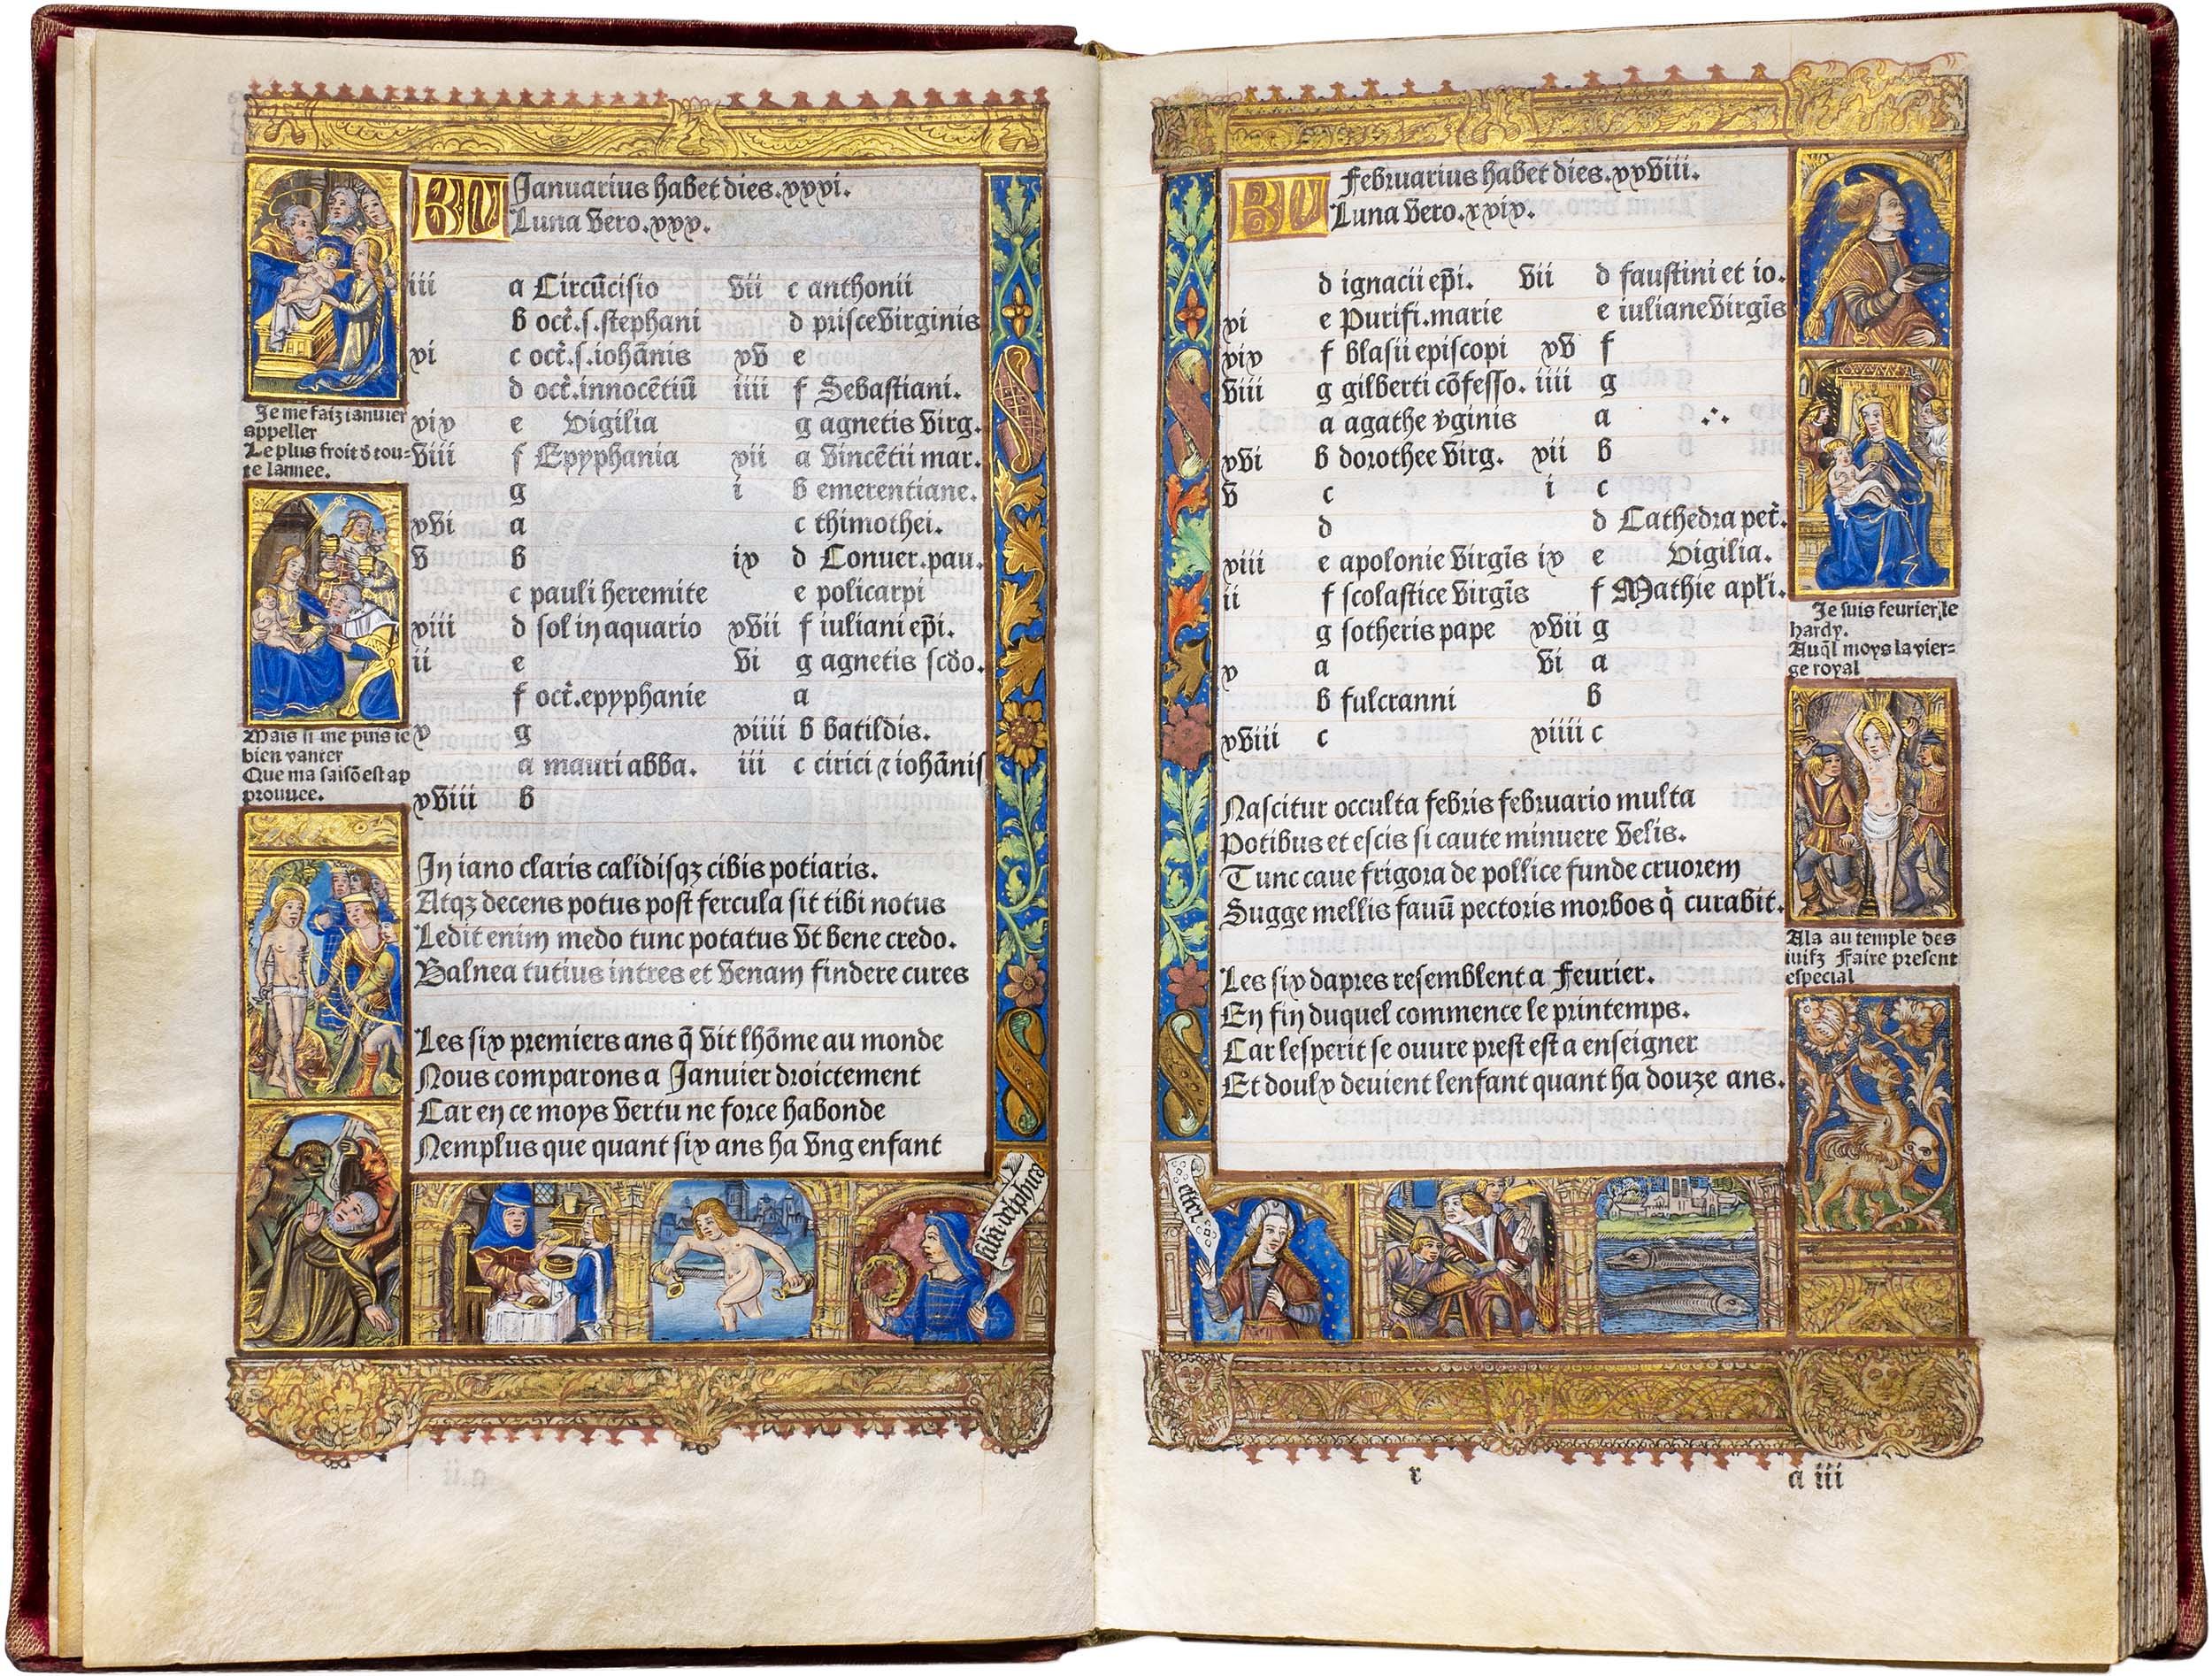 KL Januarius habet dies.xxxi.
Luna vero.xxx.
iii a Circūcisio vii c anthonii
b oct̄.s.stephani d prisce virginis
xi c oct̄.s.iohānis xv e
d oct̄.innocētiū iiii f Sebastiani.
xix e Vigilia g agnetis virg.
viii f Epyphania xii a vincētii mar.
g i b emerentiane.
xvi a c thimothei.
v b ix d Conuer.pau.
c pauli heremite e policarpi
xiii d sol in aquario xvii f iuliani ep̄i.
ii e vi g agnetis scdo.
f oct̄.epyphanie a
x g xiiii b batildis.
a mauri abba. iii c cirici ⁊ iohānis
xviii b
In iano claris calidisqꝫ cibis potiaris.
Atqꝫ decens potus post fercula sit tibi notus
Ledit enim medo tunc potatus vt bene credo.
Balnea tutius intres et venam findere cures
Les six premiers ans q̄ vit lhōme au monde
Nous comparons a Januier droictement
Car en ce moys vertu ne force habonde
Nemplus que quant six ans ha vng enfant
Je me faiz ianuier
appeller
Le plus froit d tou-
te lannee.
Mais si me puis ie
bien vanter
Que ma saisō est ap
prouuee.
a.ii
KL Februarius habet dies.xxviii.
Luna vero.xxix.
d ignacii ep̄i. vii d faustini et io.
xi e Purifi.marie e iuliane virgīs
xix f blasii episcopi xv f
viii g gilberti cōfesso. iiii g
a agathe v̄ginis a
xvi b dorothee virg. xii b
v c i c
d d Cathedra pet̄.
xiii e apolonie virgīs ix e Vigilia.
ii f scolastice virgīs f Mathie apl̄i.
g sotheris pape xvii g
x a vi a
b fulcranni b
xviii c xiiii c
Nascitur occulta febris februario multa
Potibus et escis si caute minuere velis.
Tunc caue frigora de pollice funde cruorem
Sugge mellis fauū pectoris morbos q̄ curabit.
Les six dapres resemblent a Feurier.
En fin duquel commence le printemps.
Car lesperit se ouure prest est a enseigner
Et doulx deuient lenfant quant ha douze ans.
Je suis feurier,le
hardy.
Auq̄l moys la vier-
ge royal
Ala au temple des
iuifz Faire present
especial
r
a iii